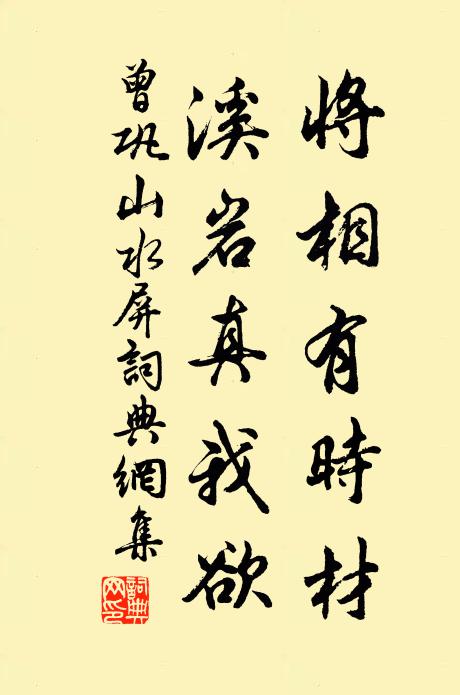 將相有時材
溪岩真我欲
曾巩山水屏詞典網集
詞典網印